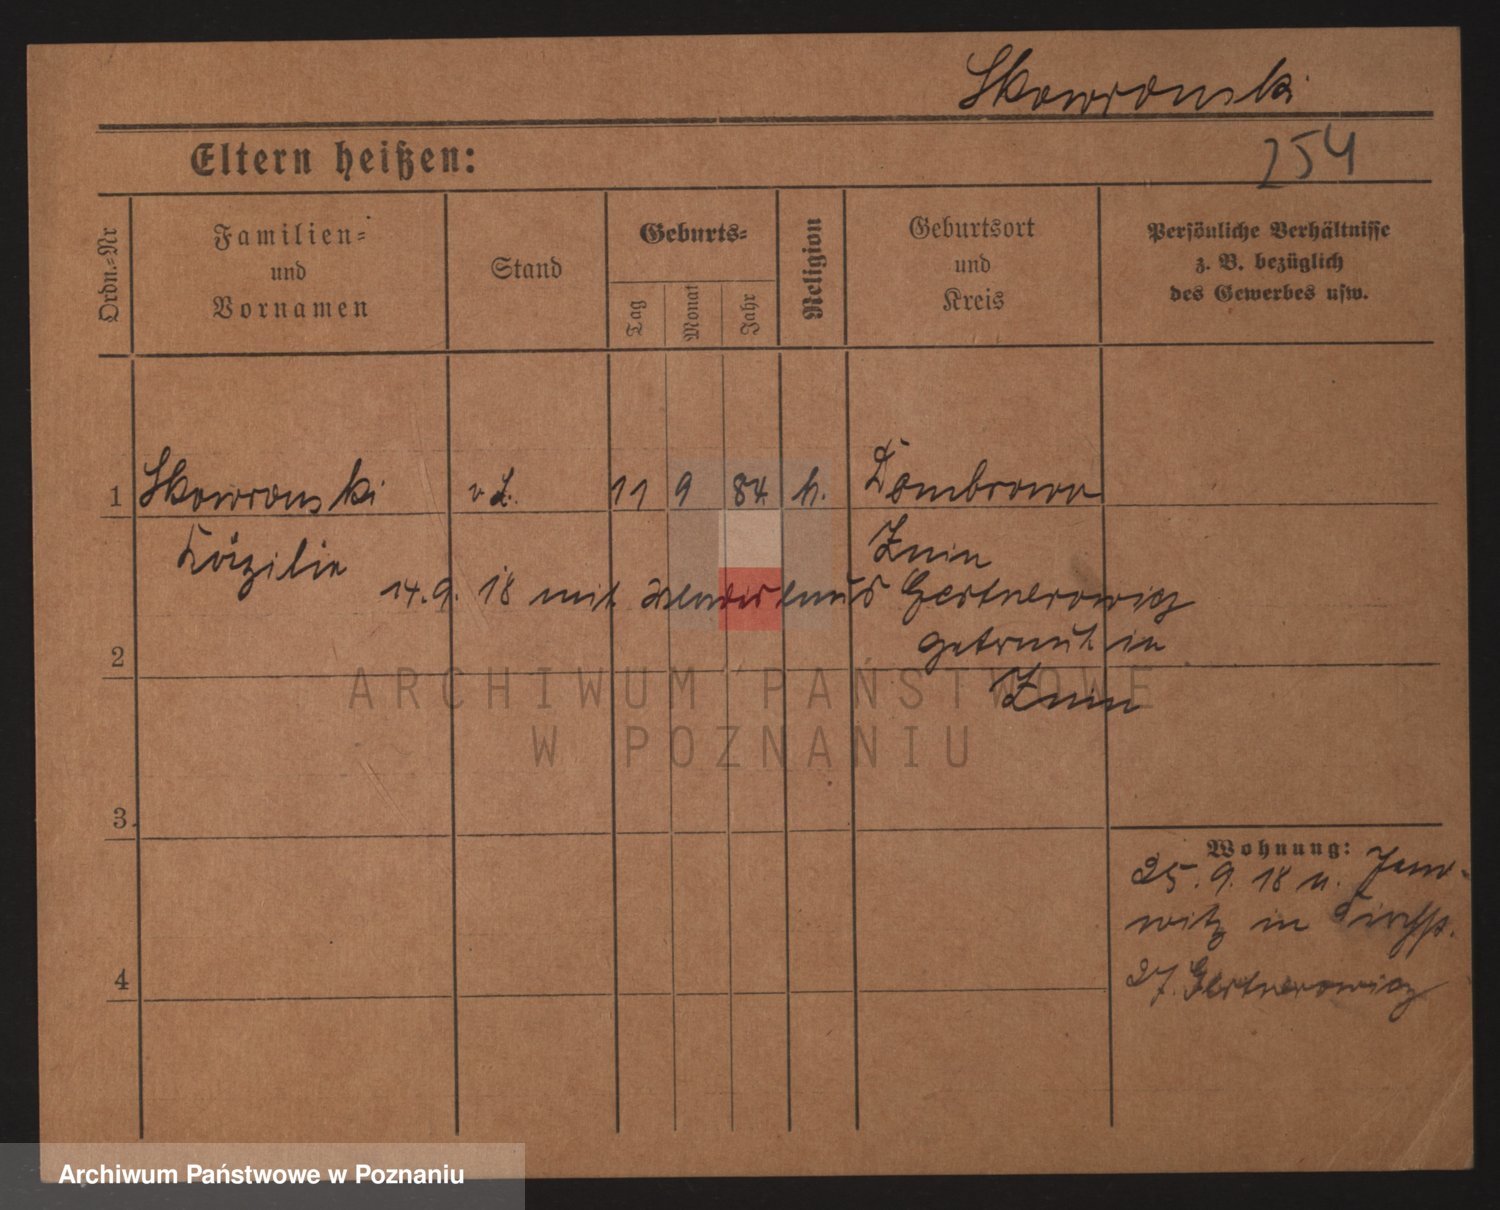 Skowronski
254
Eltern heißen:
Ordn.-Nr
Familien- und Vornamen
Stand
Geburts-
Tag
Monat
Jahr
Religion
Geburtsort und Kreis
Persönliche Verhältnisse z. B. bezüglich des Gewerbes usw.
1 Skowronski 11 9 84 k. Dombrowo
Cäzilie Znin
14.9. 18 mit Gertnerowicz
2 getraut in
Znin
ARCHIWUM PAŃSTWOWE
W POZNANIU
3.
Wohnung:
25. 9. 18 n. Jano-
witz in
4
27. Gertnerowicz
Archiwum Państwowe w Poznaniu